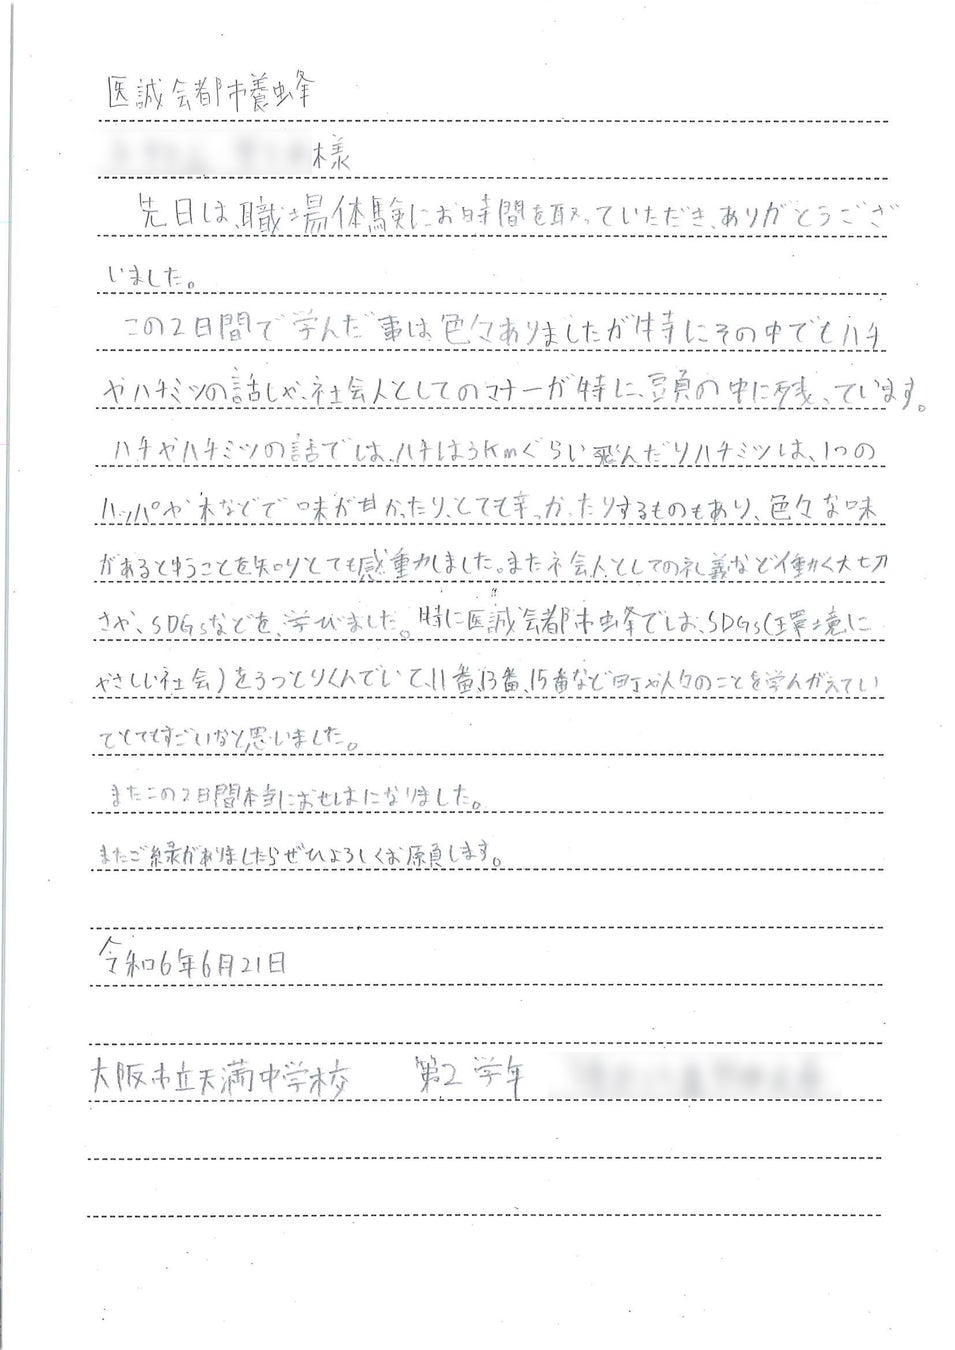 医誠会都市養蜂
様
先日は、職場体験にお時間を取っていただき、ありがとうござ
いました。
この2日間で学んだ事は色々ありましたが特にその中でもハチ
やハチミツの話しや、社会人としてのマナーが特に、頭の中に残っています。
ハチやハチミツの話では、ハチは3kmぐらい飛んだりハチミツは、1つの
ハッパや木などで味が甘かったり、とても辛っかたりするものもあり、色々な味
があるとゆうことを知りとても感動しました。また社会人としての礼義など働く大切
さや、SDGsなどを、学びました。特に医誠会都市虫蜂では、SDGs(環境に
やさしい社会)を3つとりくんでいて、11番、13番、15番など町や人々のことを学んがえてい
てとてもすごいなと思いました。
またこの2日間本当におせはになりました。
またご縁がありましたらぜひよろしくお願します。
令和6年6月21日
大阪市立天満中学校 第2学年